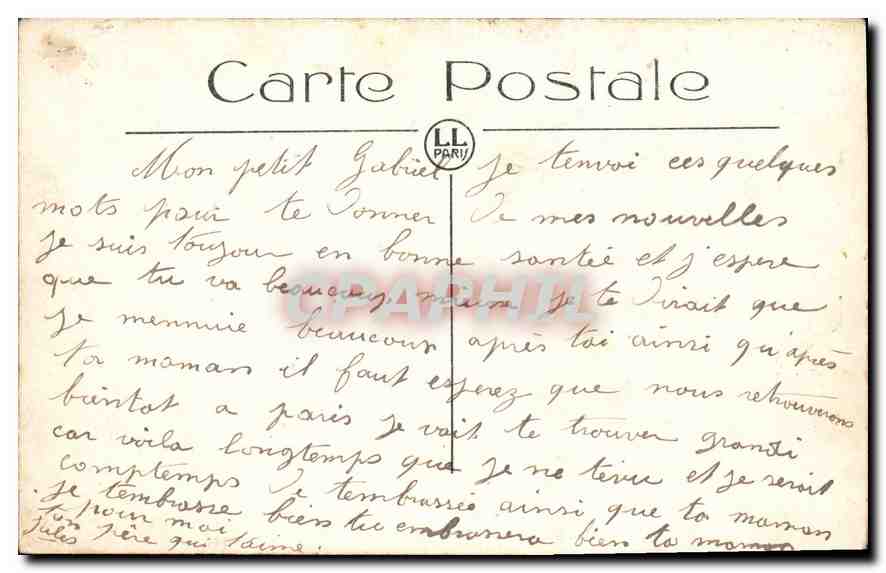 Carte Postale
LL
PARIS
Mon petit Gabriel je tenvoi ces quelques
mots pour te donner de mes nouvelles
je suis toujour en bonne santée et j'espere
que tu va beaucoup mieux je te dirait que
CPAPHIL
je mennuie beaucoup après toi ainsi qu'après
ta maman il faut esperez que nous retrouverons
bientot a paris je vait te trouver grandi
car voila longtemps que je ne tevu et je serait
comptemps de tembrassée ainsi que ta maman
je tembrasse bien tu embrassera bien ta maman
pour moi
ton père qui t'aime.
Jules